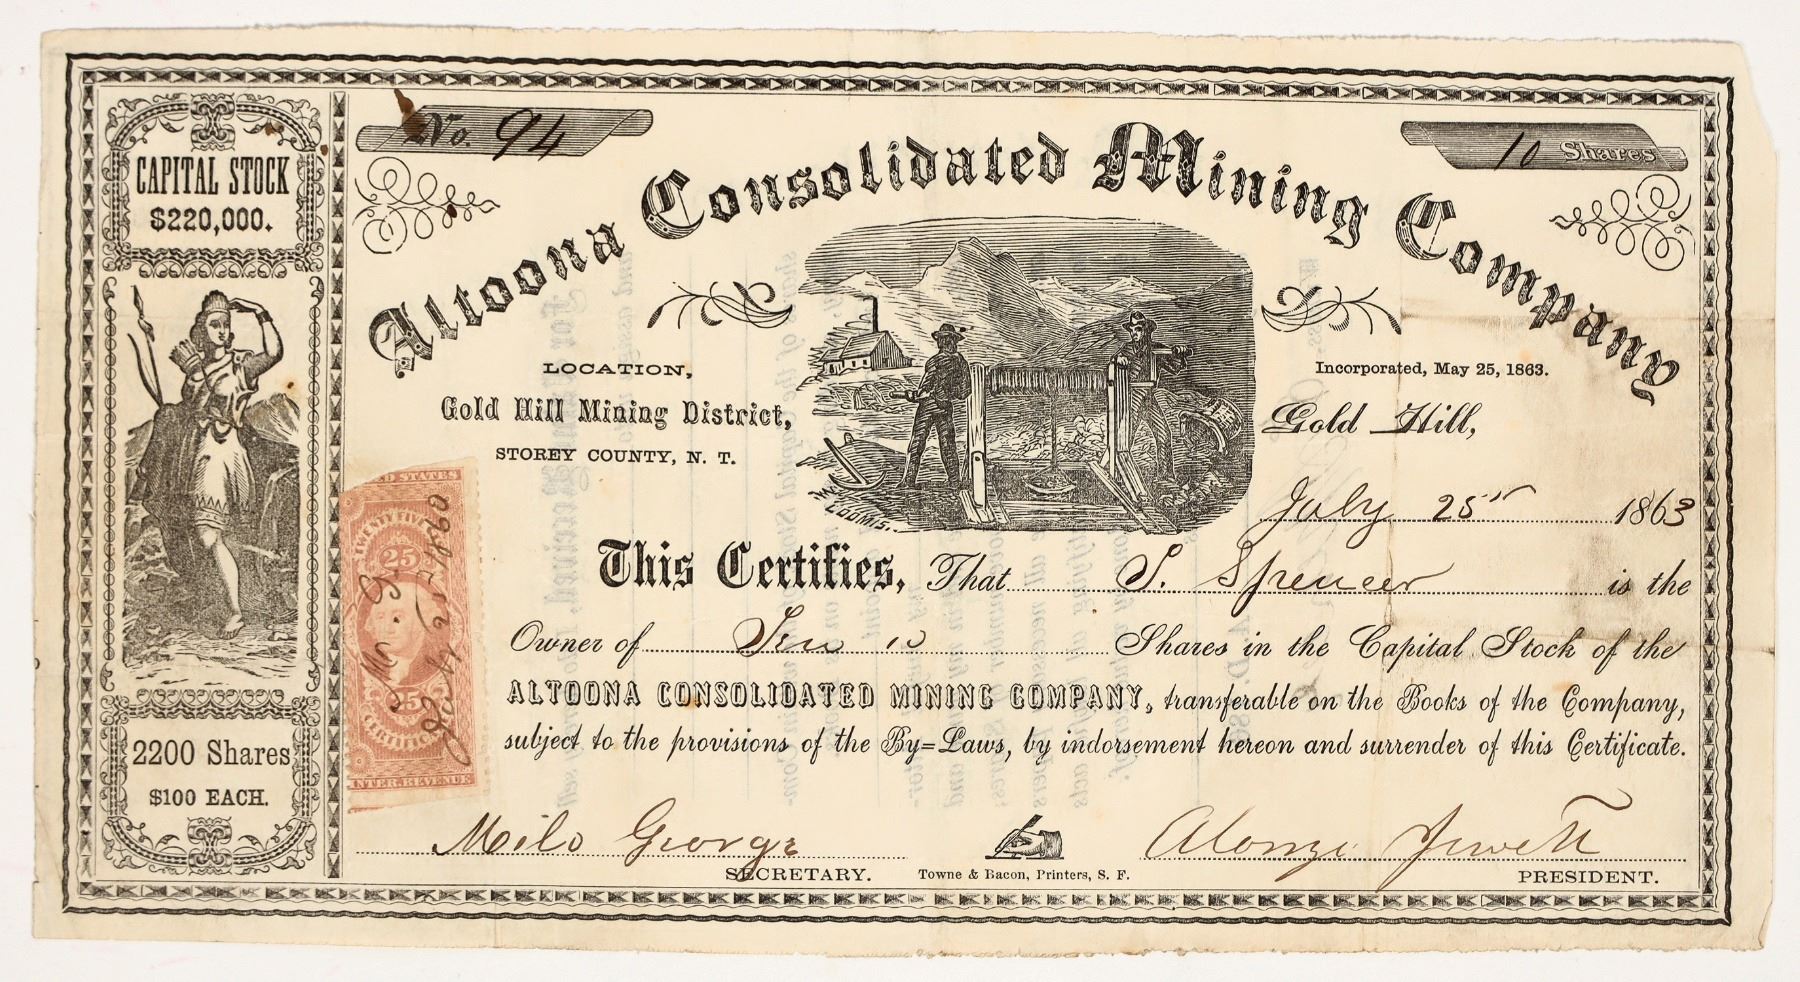 CAPITAL STOCK
$220,000.
2200 Shares
$100 EACH.
No. 94
10 Shares
Altoona Consolidated Mining Company
LOCATION,
Gold Hill Mining District,
STOREY COUNTY, N. T.
LOOMIS.
Incorporated, May 25, 1863.
Gold Hill,
July 25 1863
This Certifies, That S. Spencer is the
Owner of Ten 10 Shares in the Capital Stock of the
ALTOONA CONSOLIDATED MINING COMPANY, transferable on the Books of the Company,
subject to the provisions of the By=Laws, by indorsement hereon and surrender of this Certificate.
Milo George
SECRETARY.
Towne & Bacon, Printers, S. F.
Alonzo Jewett
PRESIDENT.
ED STATES
TWENTY FIVE
25
25
CERTIFICATE
INTER. REVENUE
M. G.
July 25